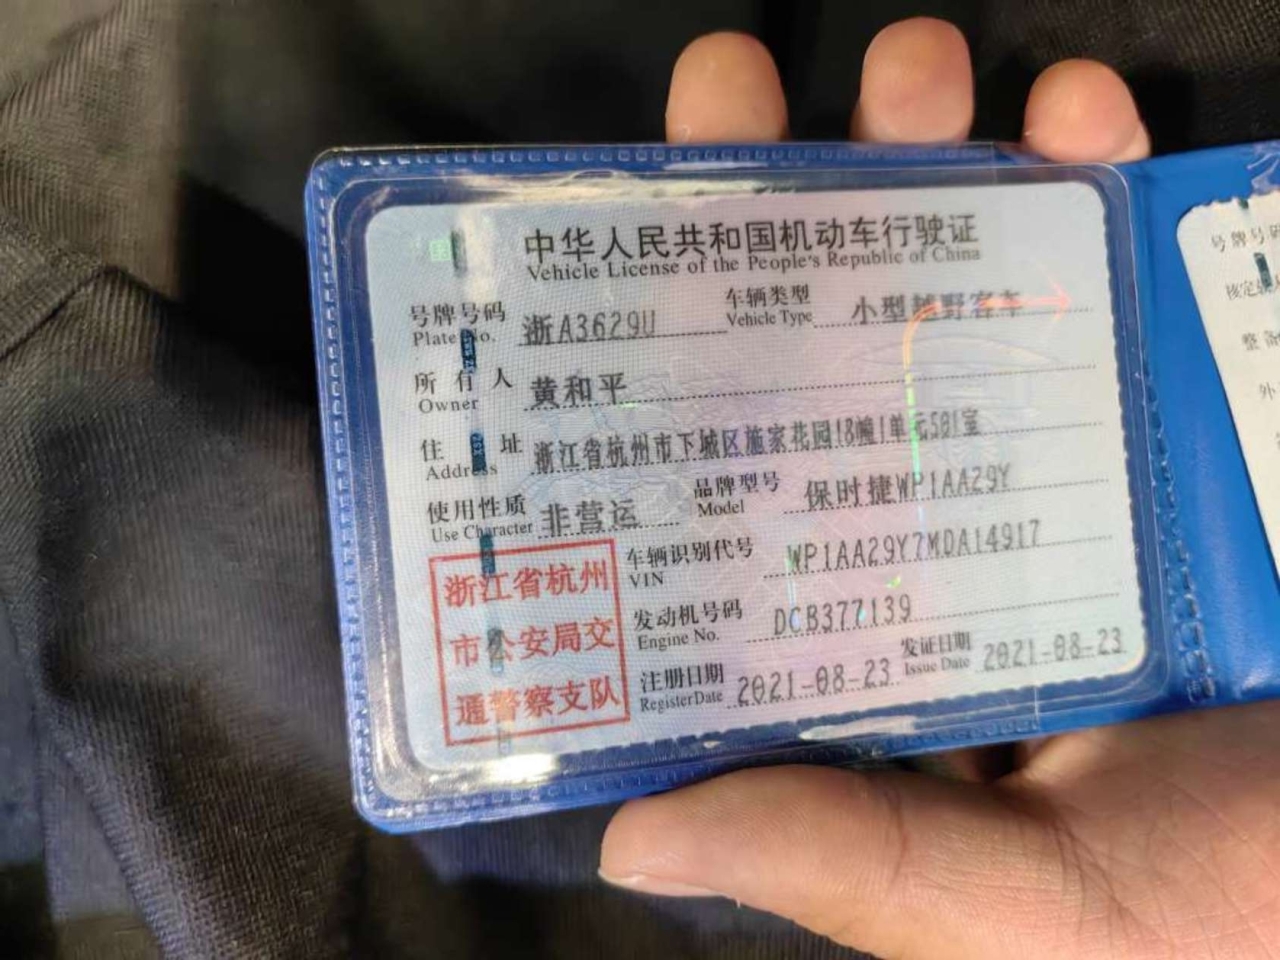 中华人民共和国机动车行驶证
Vehicle License of the People's Republic of China
号牌号码 浙A3629U 车辆类型 小型越野客车
Plate No. Vehicle Type
所有人 黄和平
Owner
住址 浙江省杭州市下城区施家花园18幢1单元501室
Address
使用性质 非营运 品牌型号 保时捷WP1AA29Y
Use Character Model
车辆识别代号 WP1AA29Y7MDA14917
VIN
发动机号码 DCB377139
Engine No.
注册日期 2021-08-23 发证日期 2021-08-23
Register Date Issue Date
浙江省杭州
市公安局交
通警察支队
号牌号码
核定载人
整备
外